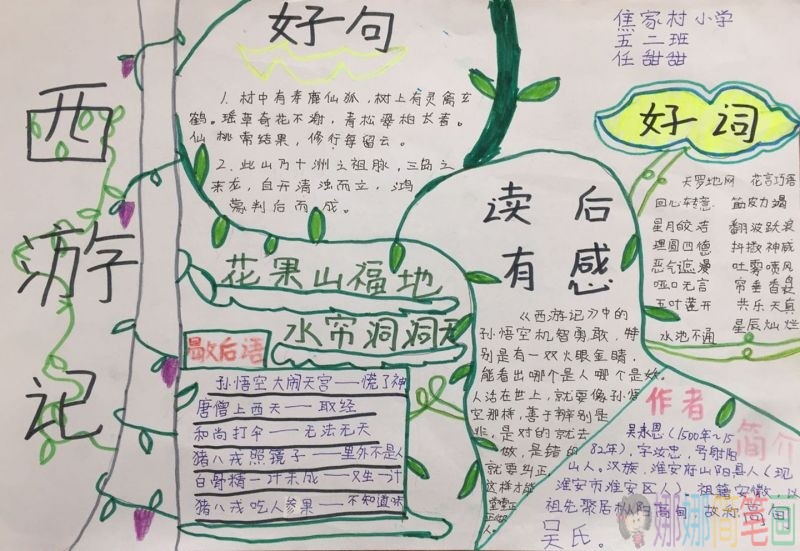 西游记
好句
1. 树中有寿鹿仙狐,树上有灵禽玄
鹤。瑶草奇花不谢,青松翠柏长春。
仙桃常结果,修行每留云。
2. 此山乃十洲之祖脉,三岛之
来龙,自开清浊而立,鸿
蒙判后而成。
焦家村小学
五二班
任甜甜
好词
天罗地网 花言巧语
回心转意 筋皮力竭
星月皎洁 翻波跃浪
理圆四德 抖擞神威
恶气遮漫 吐雾喷风
哑口无言 帘垂香袅
五叶莲开 共乐天真
水池不通 星辰灿烂
花果山福地
水帘洞洞天
歇后语
孙悟空大闹天宫——慌了神
唐僧上西天——取经
和尚打伞——无法无天
猪八戒照镜子——里外不是人
白骨精一计未成——又生一计
猪八戒吃人参果——不知道味
读后有感
《西游记》中的
孙悟空机智勇敢,特
别是有一双火眼金睛,
能看出哪个是人哪个是妖。
人活在世上,就要像孙悟
空那样,善于辨别是
非,是对的就去
做,是错的
就要纠正
这样才能
作者简介
吴承恩(1500年~15
82年),字汝忠,号射阳
山人。汉族,淮安府山阳县人(现
淮安市淮安区人)。祖籍安徽,以
祖先聚居枞阳高甸,故称高甸
吴氏。
娜娜简笔画